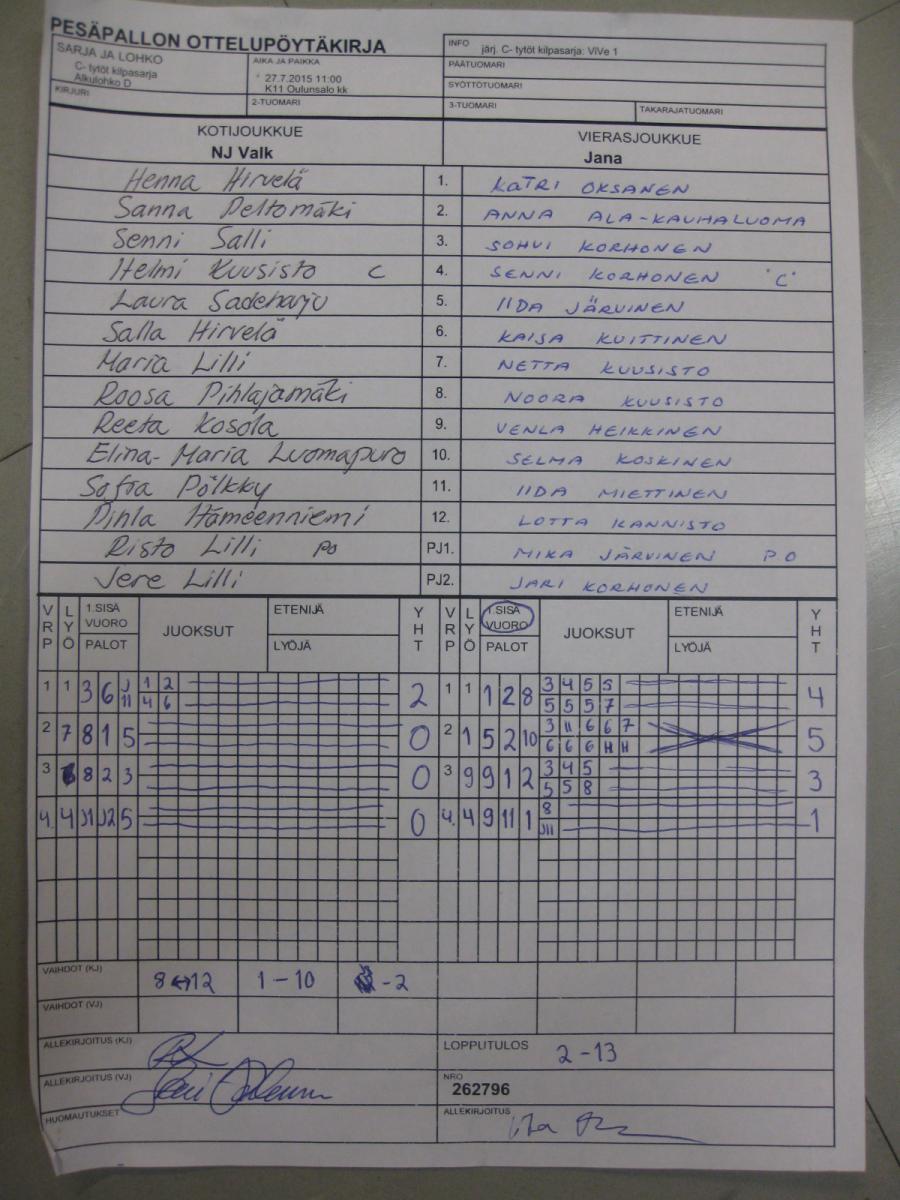 PESÄPALLON OTTELUPÖYTÄKIRJA
SARJA JA LOHKO
C- tytöt kilpasarja
Alkulohko D
KIRJURI
AIKA JA PAIKKA
27.7.2015 11:00
K11 Oulunsalo kk
2-TUOMARI
INFO järj. C- tytöt kilpasarja: ViVe 1
PÄÄTUOMARI
SYÖTTÖTUOMARI
3-TUOMARI TAKARAJATUOMARI
KOTIJOUKKUE VIERASJOUKKUE
NJ Valk Jana
Henna Hirvelä 1. KATRI OKSANEN
Sanna Peltomäki 2. ANNA ALA-KAUHALUOMA
Senni Salli 3. SOHVI KORHONEN
Helmi Kuusisto C 4. SENNI KORHONEN "C"
Laura Sadeharju 5. IIDA JÄRVINEN
Salla Hirvelä 6. KAISA KUITTINEN
Maria Lilli 7. NETTA KUUSISTO
Roosa Pihlajamäki 8. NOORA KUUSISTO
Reeta Kosola 9. VENLA HEIKKINEN
Elina-Maria Luomapuro 10. SELMA KOSKINEN
Sofia Pölkky 11. IIDA MIETTINEN
Pihla Hämeenniemi 12. LOTTA KANNISTO
Risto Lilli PO PJ1. MIKA JÄRVINEN PO
Jere Lilli PJ2. JARI KORHONEN
VRP LYÖ 1.SISÄ VUORO PALOT JUOKSUT ETENIJÄ LYÖJÄ YHT VRP LYÖ 1.SISÄ VUORO PALOT JUOKSUT ETENIJÄ LYÖJÄ YHT
1 1 3 6 J11 1 2 2 1 1 1 2 8 3 4 5 5 4
4 6 5 5 5 7
2 7 8 1 5 0 2 1 5 2 10 3 11 6 6 7 5
6 6 6 H H
3 8 2 3 0 3 9 9 1 2 3 4 5 3
5 5 8
4. 4 J1 J2 5 0 4. 4 9 11 1 8 1
J11
VAIHDOT (KJ) 8↔12 1-10 -2
VAIHDOT (VJ)
ALLEKIRJOITUS (KJ)
LOPPUTULOS 2-13
ALLEKIRJOITUS (VJ)
NRO
262796
HUOMAUTUKSET
ALLEKIRJOITUS